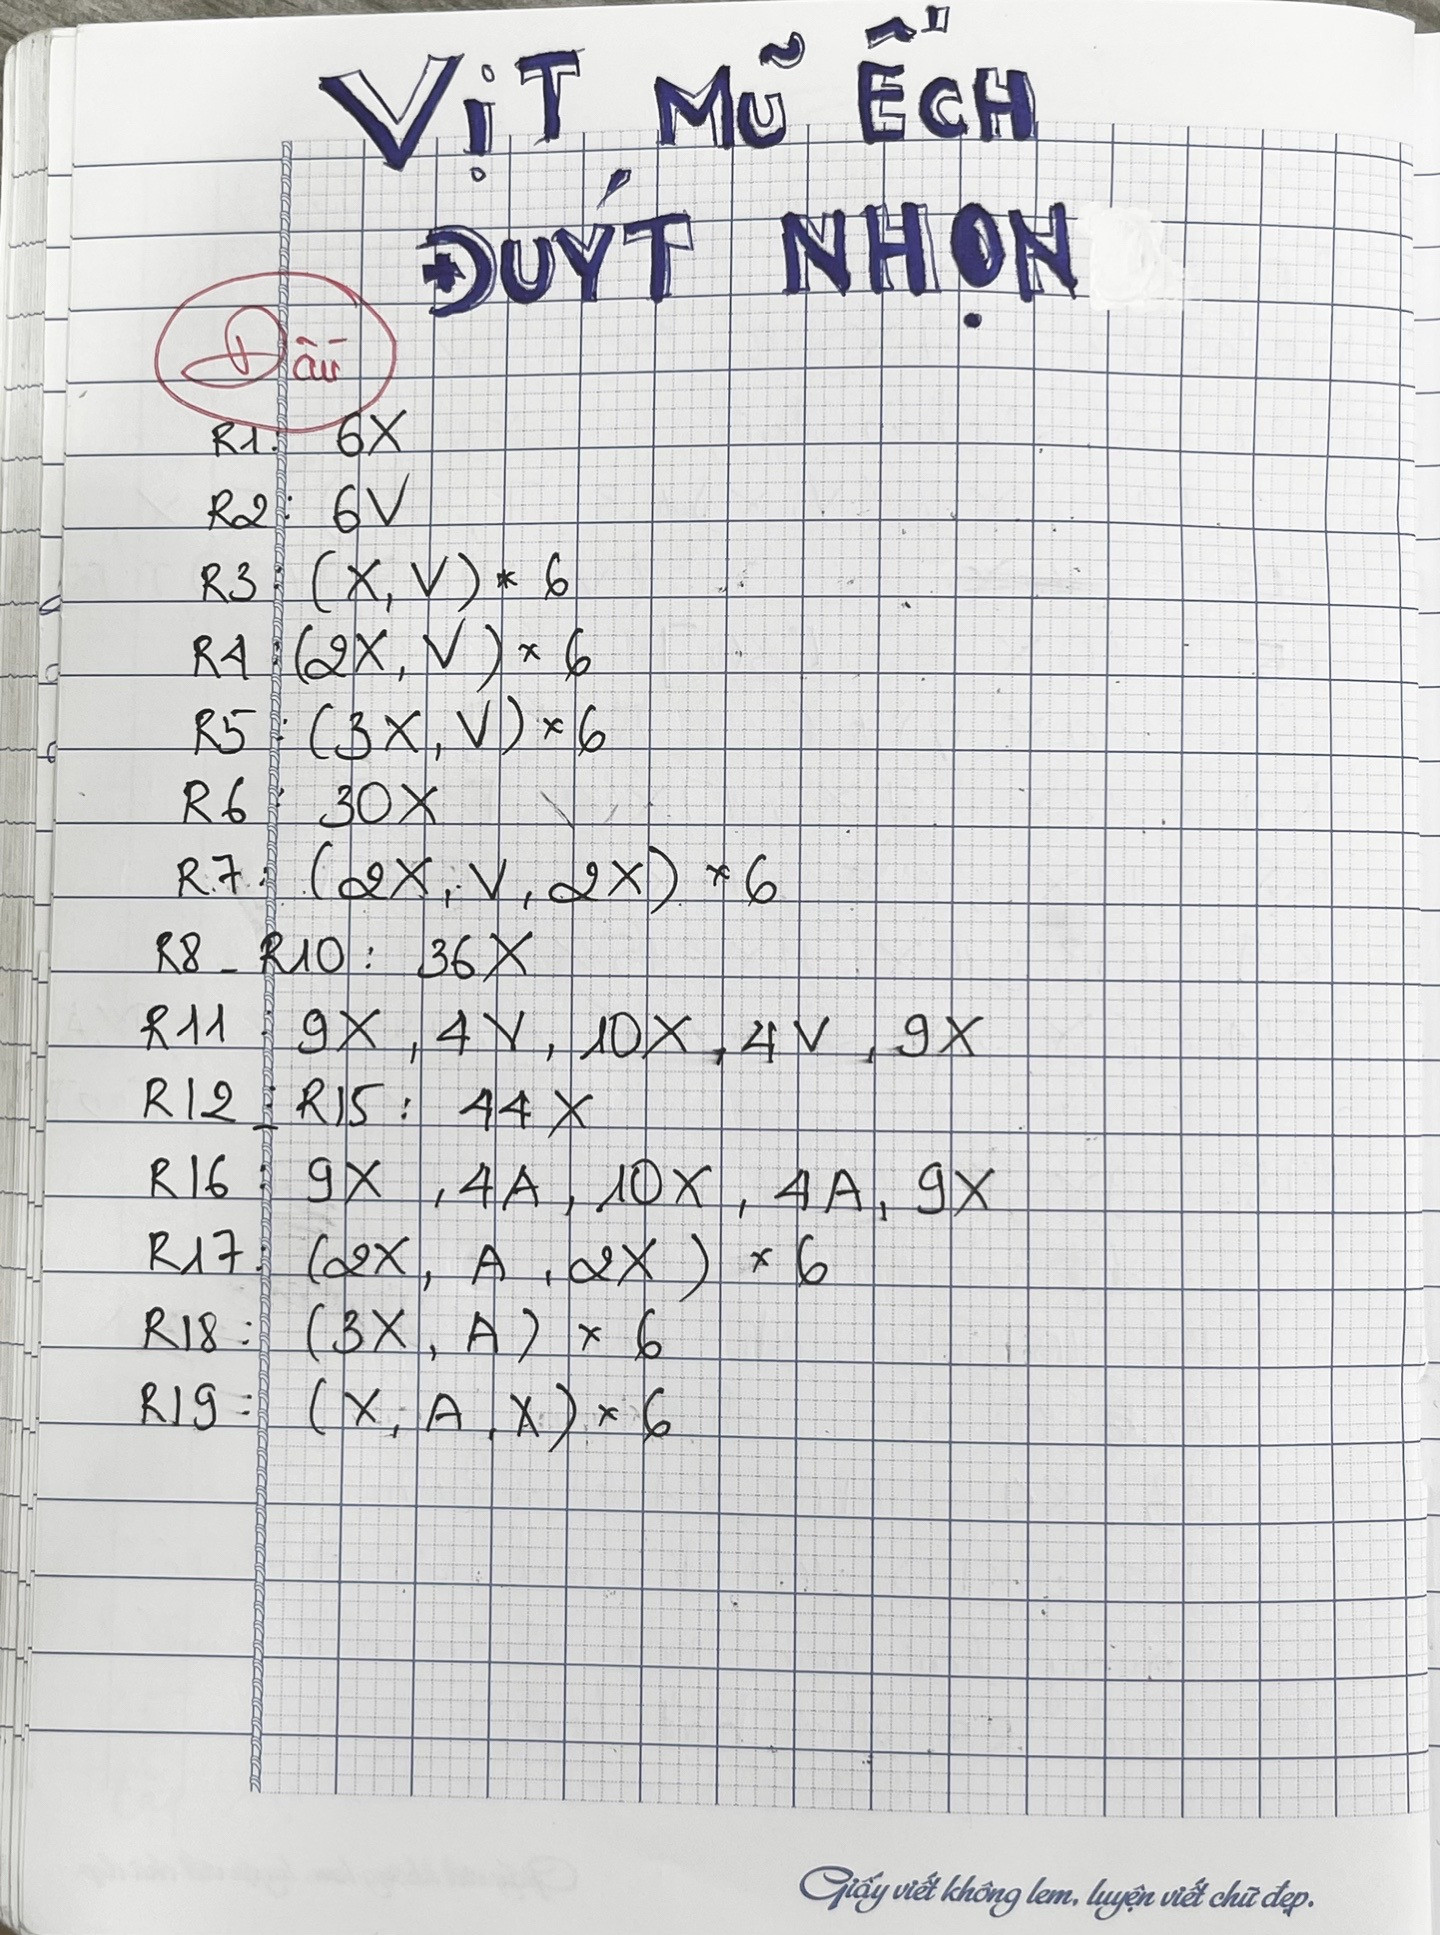 VỊT MŨ ẾCH
ĐUÝT NHỌN
Đầu
R1: 6X
R2: 6V
R3: (X, V) * 6
R4: (2X, V) * 6
R5: (3X, V) * 6
R6: 30X
R7: (2X, V, 2X) * 6
R8 - R10: 36X
R11: 9X, 4V, 10X, 4V, 9X
R12 - R15: 44X
R16: 9X, 4A, 10X, 4A, 9X
R17: (2X, A, 2X) * 6
R18: (3X, A) * 6
R19: (X, A, X) * 6
Giấy viết không lem, luyện viết chữ đẹp.